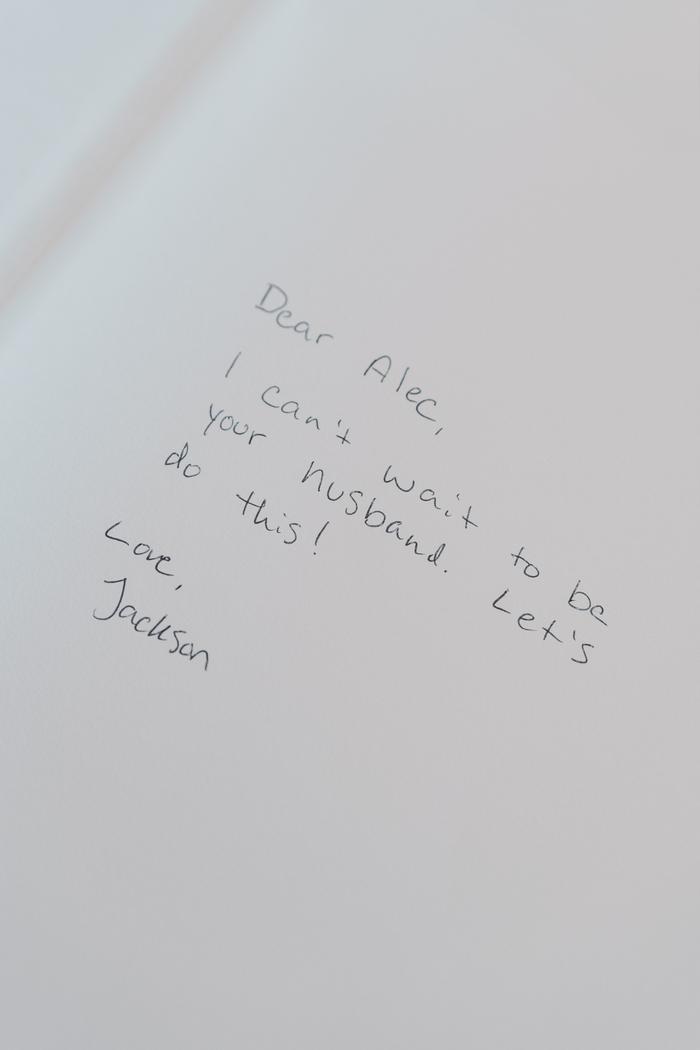 Dear Alec,
I can't wait to be
your husband. Let's
do this!
Love,
Jackson